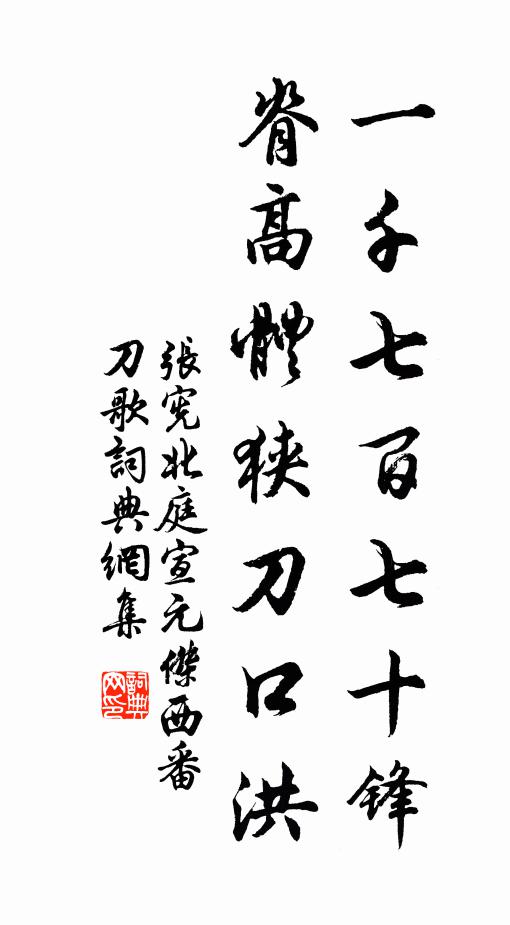 一千七百七十鋒
脊高體狹刀口洪
張憲北庭宣元傑西番
刀歌詞典網集
詞典網印